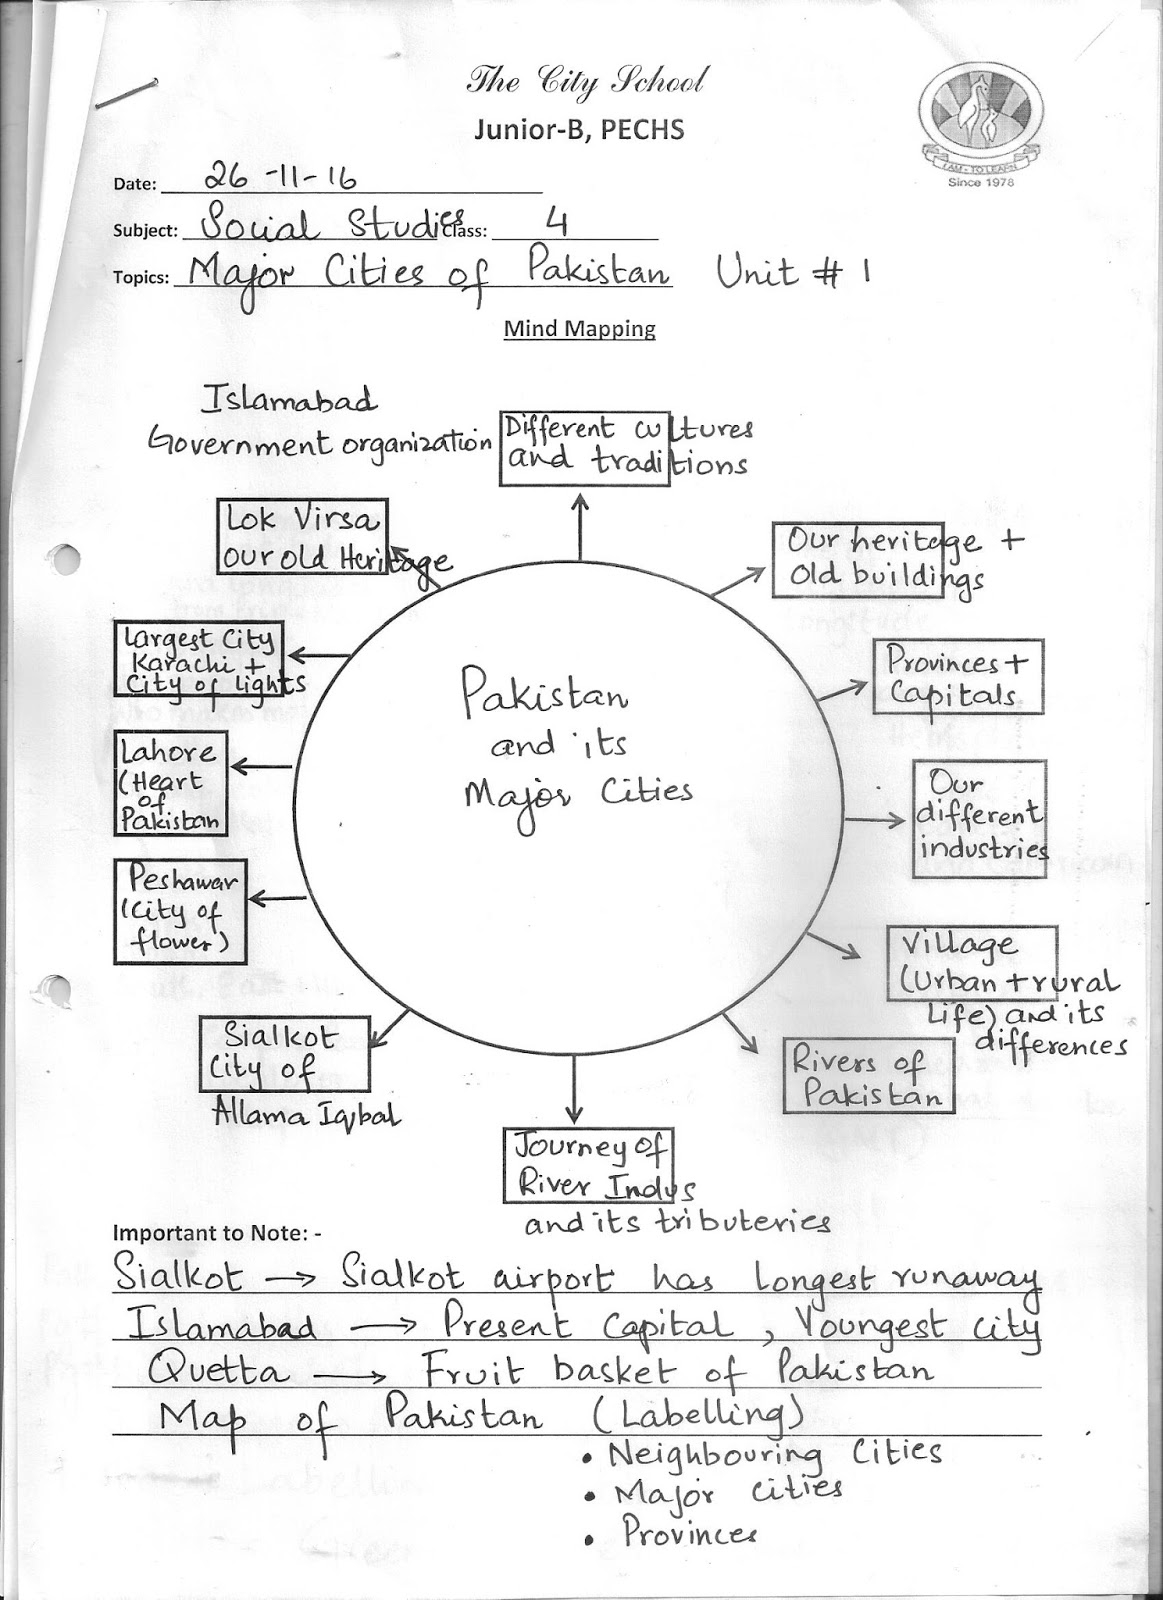 The City School
Junior-B, PECHS
I AM - TO LEARN
Since 1978
Date: 26-11-16
Subject: Social Studies Class: 4
Topics: Major Cities of Pakistan Unit # 1
Mind Mapping
Islamabad
Government organization
Different cultures
and traditions
Lok Virsa
our old Heritage
Our heritage +
old buildings
Largest City
Karachi +
City of lights
Provinces +
Capitals
Pakistan
and its
Major Cities
Lahore
(Heart
of
Pakistan
Our
different
industries
Peshawar
(City of
flower)
Village
(Urban + rural
Life) and its
differences
Sialkot
City of
Allama Iqbal
Rivers of
Pakistan
Journey of
River Indus
and its tributeries
Important to Note: -
Sialkot → Sialkot airport has longest runaway
Islamabad → Present Capital, Youngest city
Quetta → Fruit basket of Pakistan
Map of Pakistan (Labelling)
• Neighbouring Cities
• Major cities
• Provinces